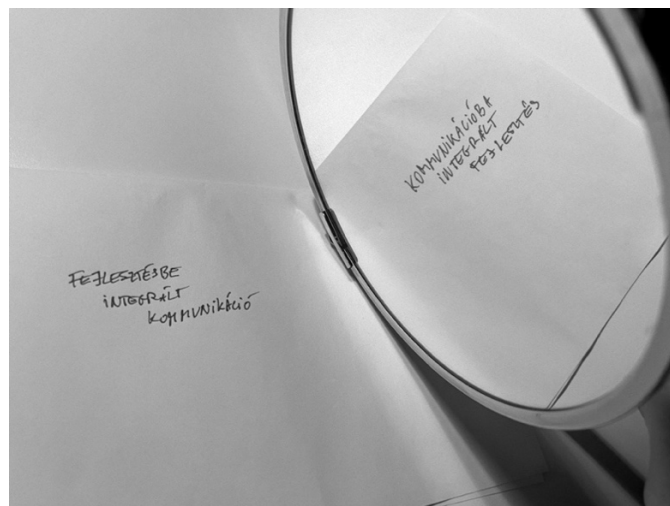 FEJLESZTÉSBE
INTEGRÁLT
KOMMUNIKÁCIÓ
KOMMUNIKÁCIÓBA
INTEGRÁLT
FEJLESZTÉS